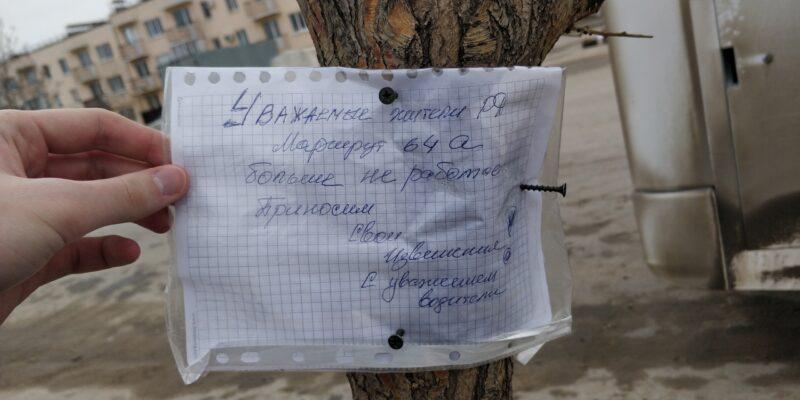 Уважаемые жители РФ
Маршрут 64 а
больше не работае
Приносим
Свои
извенения!
С уважением
водители